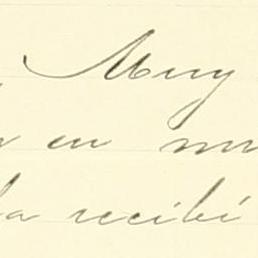 Muy
en
la recibí